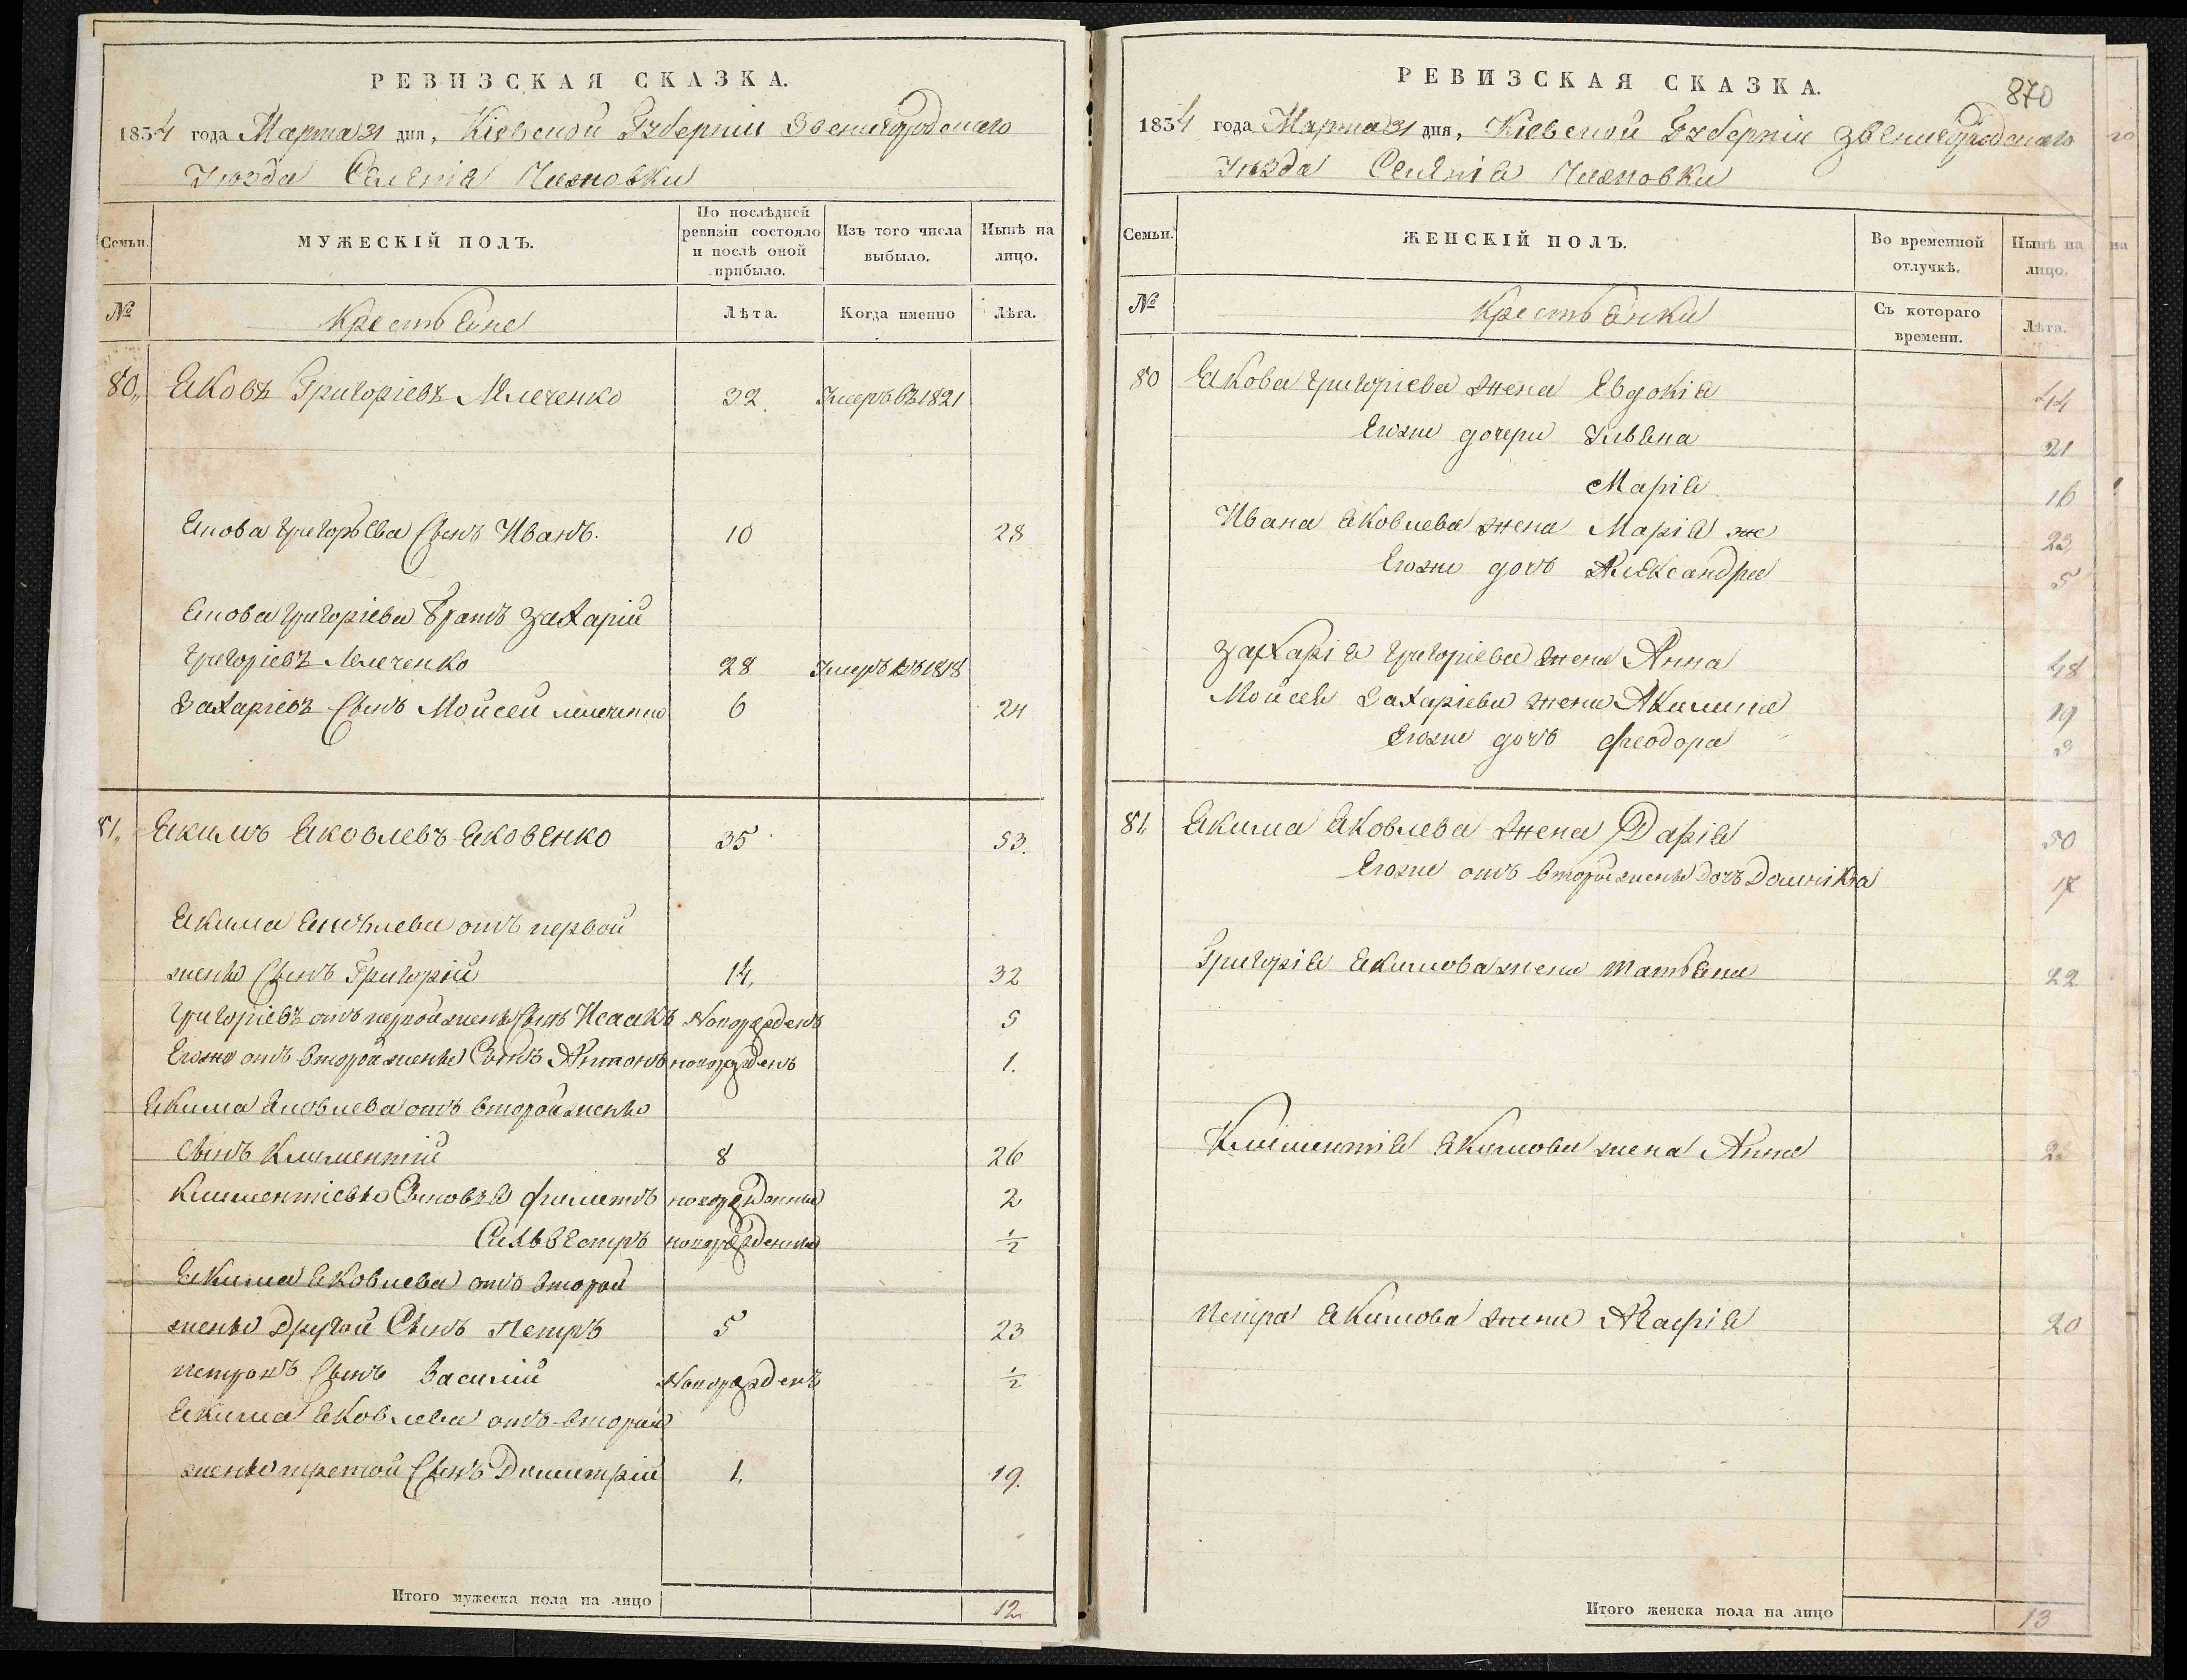 РЕВИЗСКАЯ СКАЗКА.
1834 года Марта 31 дня, Кіевской Губерніи Звенигородскаго
Уезда Селенія Чижовки
Семьи.
МУЖЕСКІЙ ПОЛЪ.
По послѣдней ревизіи состояло и послѣ оной прибыло.
Изъ того числа выбыло.
Нынѣ на лицо.
№
Крестьяне
Лѣта.
Когда именно
Лѣта.
80. Яковъ Григоріевъ Мличенко 32. Умеръ въ 1821
Якова Григорьева Сынъ Иванъ. 10 28
Якова Григоріева Братъ Захарій
Григоріевъ 28 Умеръ въ 1818
Захаріевъ Сынъ Мойсей 6 24
81. Якимъ Яковлевъ Яковенко 35 53.
Якима Яковлева отъ первой
жены Сынъ Григорій 14, 32
Григоріевъ отъ первой жены Сынъ Исаакъ Новорожденъ 5
Егоже отъ второй жены Сынъ Антонъ новорожденъ 1.
Якима Яковлева отъ второй жены
Сынъ Климентій 8 26
Климентіевы Сыновья Филиппъ новорожденные 2
Сильвестръ новорожденные ½
Якима Яковлева отъ второй
жены Другой Сынъ Петръ 5 23
Петровъ Сынъ Василій Новорожденъ ½
Якима Яковлева отъ второй
жены третой Сынъ Димитрій 1. 19.
Итого мужеска пола на лицо 12.
870
РЕВИЗСКАЯ СКАЗКА.
1834 года Марта 31 дня, Кіевской Губерніи Звенигородскаго
Уезда Селенія Чижовки
Семьи.
ЖЕНСКІЙ ПОЛЪ.
Во временной отлучкѣ.
Нынѣ на лицо.
№
Крестьянки
Съ котораго времени.
Лѣта.
80 Якова Григоріева жена Евдокія 44
Егоже дочери Ульяна 21
Марія 16
Ивана Яковлева жена Марія же 23
Егоже дочь Александра 5
Захарія Григоріева жена Анна 48
Мойсея Захаріева жена Акилина 19
Егоже дочь Феодора
81, Якима Яковлева жена Дарія 50
Егоже отъ второй жены дочь Домникія 17
Григорія Якимова жена Татьяна 22
Климентія Якимова жена Анна
Петра Якимова жена Агафія 20
Итого женска пола на лицо 13